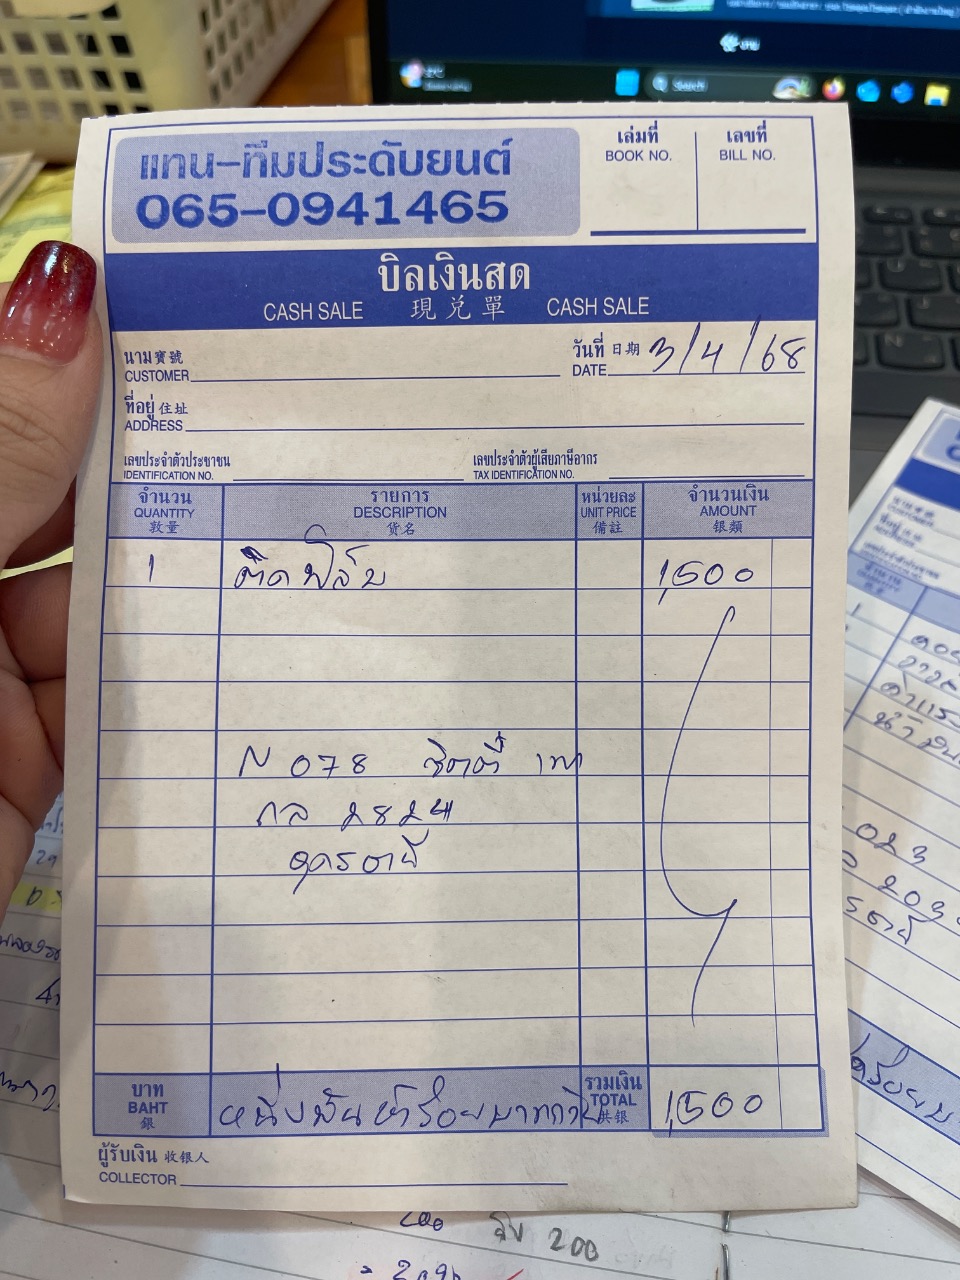 Search
แทน-ทีมประดับยนต์
065-0941465
เล่มที่
BOOK NO.
เลขที่
BILL NO.
บิลเงินสด
CASH SALE 現兑單 CASH SALE
นาม寶號
CUSTOMER
วันที่ 日期
DATE 3/4/68
ที่อยู่ 住址
ADDRESS
เลขประจำตัวประชาชน
IDENTIFICATION NO.
เลขประจำตัวผู้เสียภาษีอากร
TAX IDENTIFICATION NO.
จำนวน
QUANTITY
数量
รายการ
DESCRIPTION
货名
หน่วยละ
UNIT PRICE
備註
จำนวนเงิน
AMOUNT
银類
1 ติดฟิล์ม 1,500
N 078 ซิตตี้ เทา
กล 2824
อุดรธานี
บาท
BAHT
銀
หนึ่งพันห้าร้อยบาทถ้วน
รวมเงิน
TOTAL
共银
1,500
ผู้รับเงิน 收银人
COLLECTOR
023
203
200